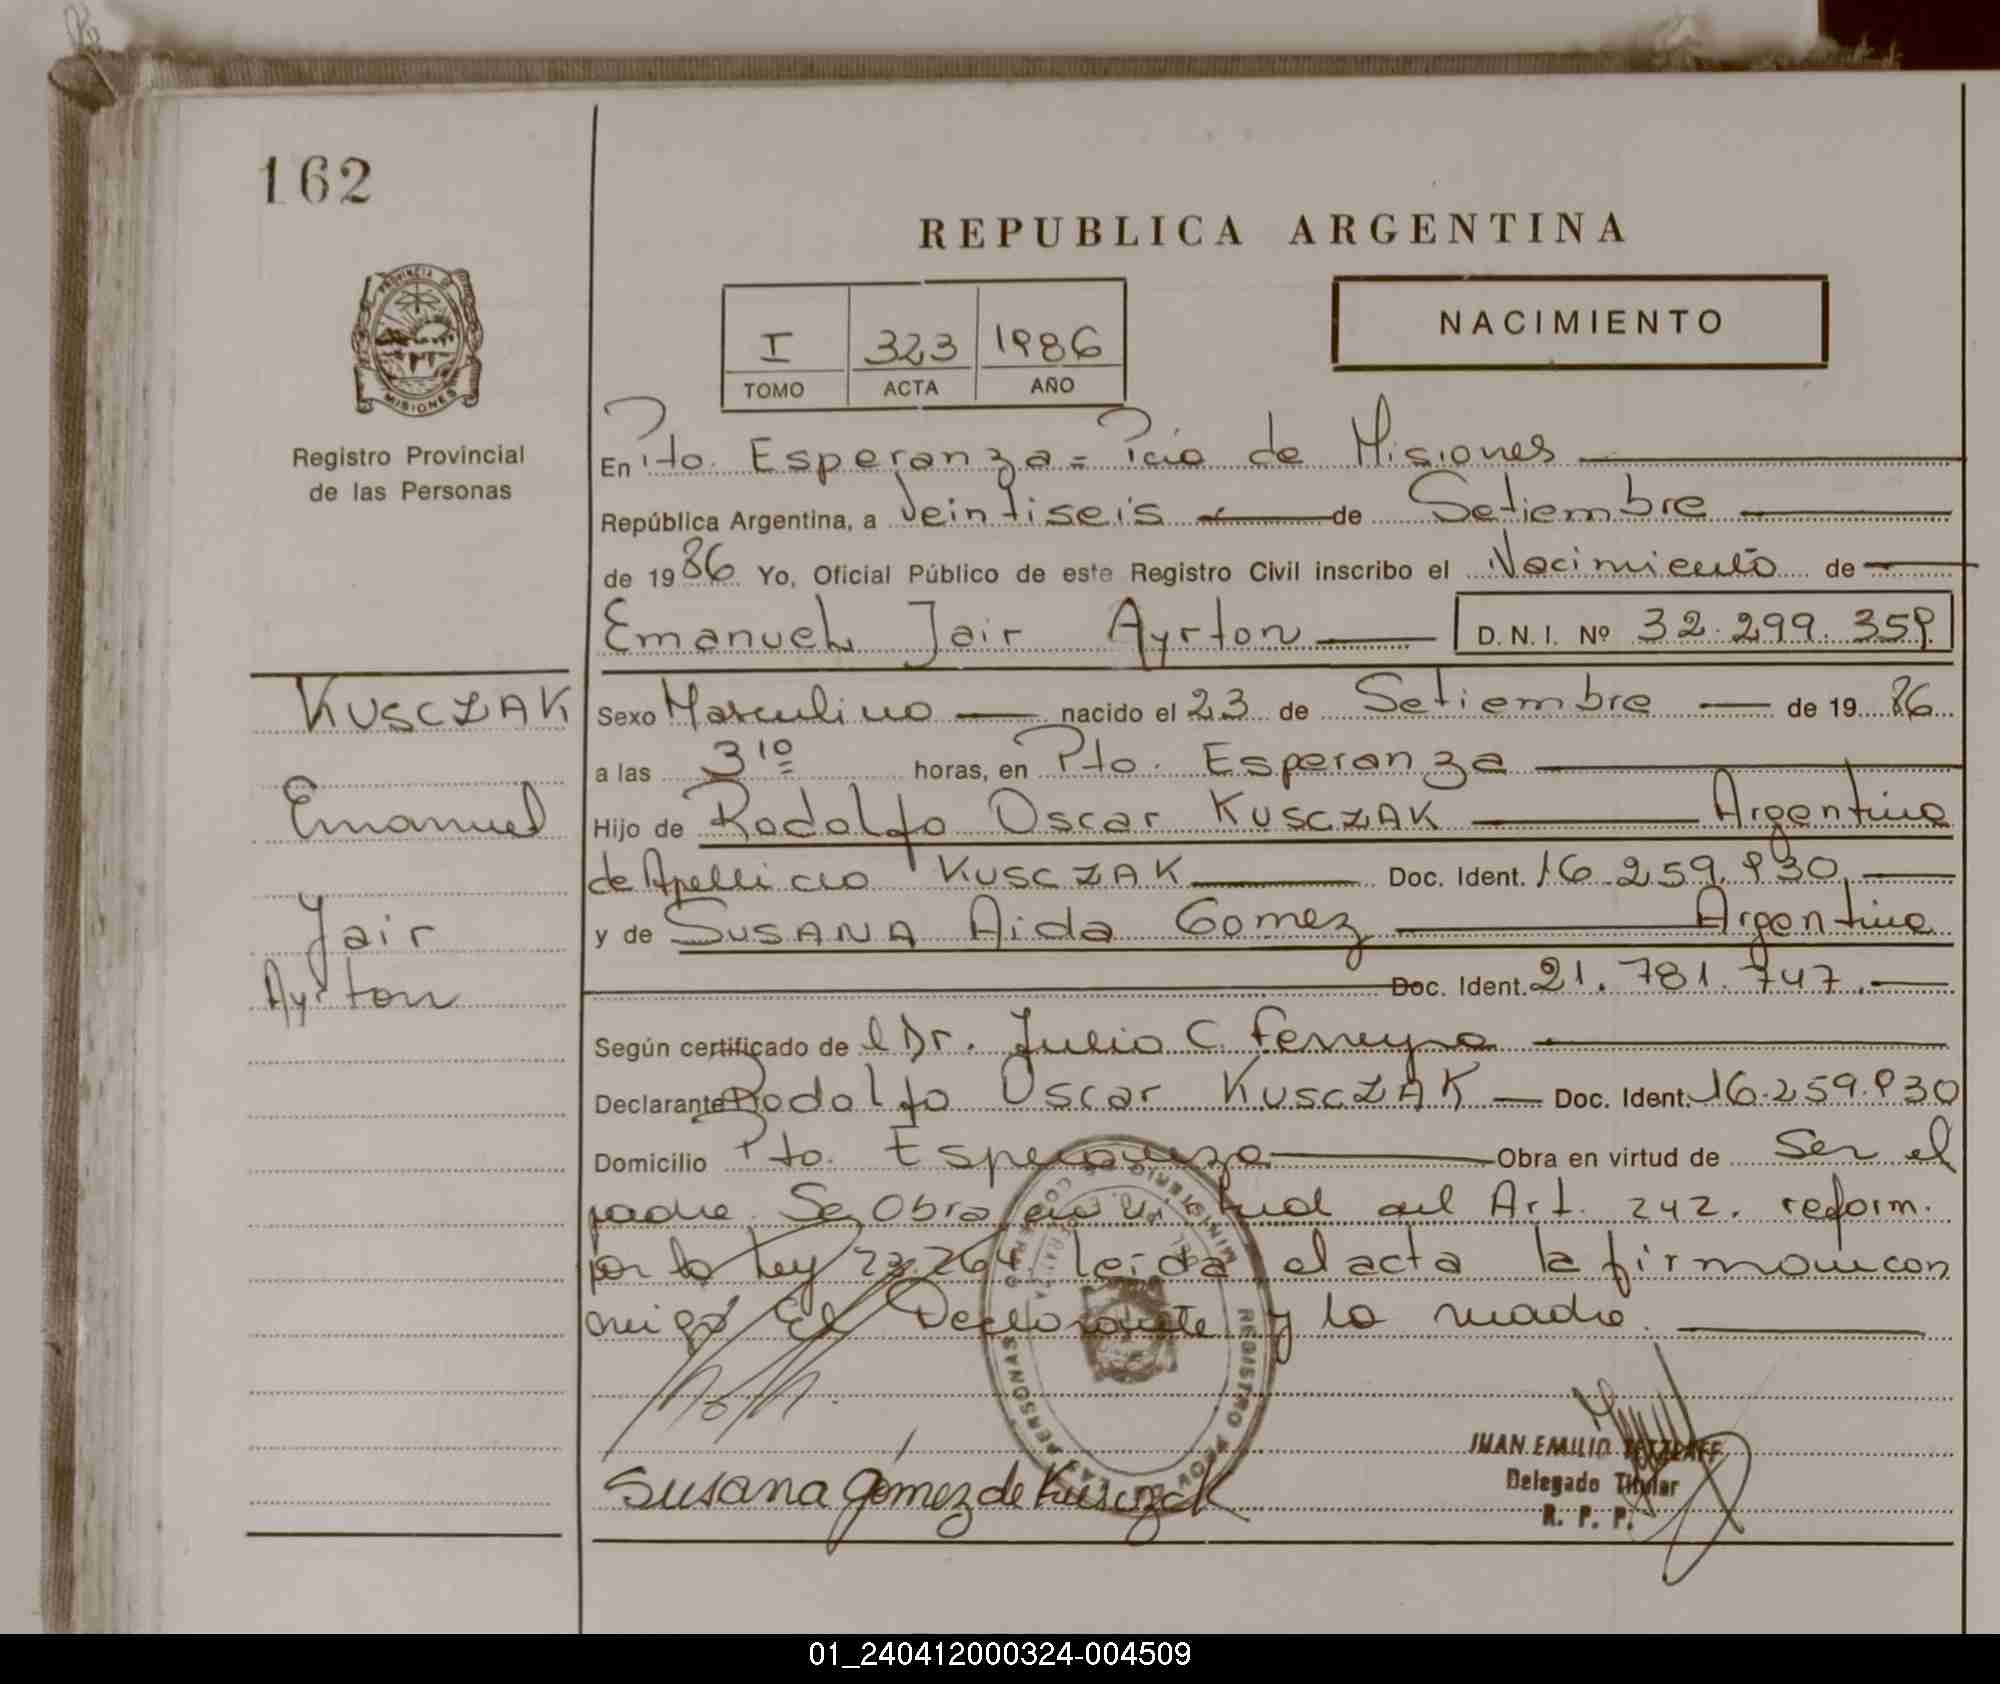 162
REPUBLICA ARGENTINA
NACIMIENTO
I 323 1986
TOMO ACTA AÑO
PROVINCIA DE
MISIONES
Registro Provincial
de las Personas
En Pto. Esperanza = Pcia de Misiones
República Argentina, a Veintiseis de Setiembre
de 1986 Yo, Oficial Público de este Registro Civil inscribo el Nacimiento de
Emanuel Jair Ayrton D.N.I. Nº 32.299.359
KUSCZAK
Emanuel
Jair
Ayrton
Sexo Masculino nacido el 23 de Setiembre de 1986
a las 3 10 horas, en Pto. Esperanza
Hijo de Rodolfo Oscar KUSCZAK Argentino
de Apellido KUSCZAK Doc. Ident. 16.259.930
y de SUSANA Aida Gomez Argentina
Doc. Ident. 21.781.747.
Según certificado del Dr. Julio C. Ferreyra
Declarante Rodolfo Oscar KUSCZAK Doc. Ident. 16.259.930
Domicilio Pto. Esperanza Obra en virtud de Ser el
padre. Se Obra en virtud del Art. 242. reform.
por la Ley 23.264 leida el acta la firman con
migo El Declarante y la madre.
REGISTRO PROV. DE LAS PERSONAS
Susana Gómez de Kusczak
JUAN EMILIO TETZLAFF
Delegado Titular
R. P. P.
01_240412000324-004509